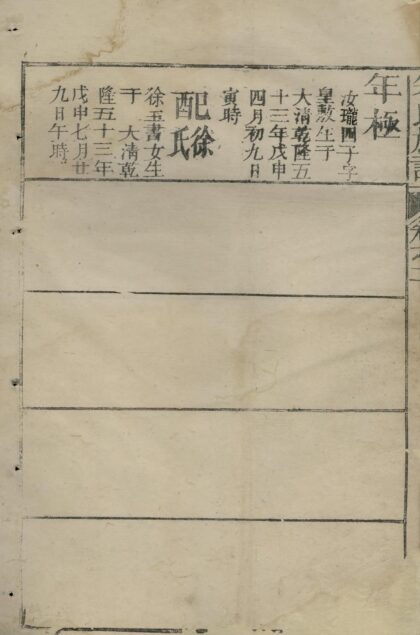 年極
汝瓏四子字
皇敖生于
大清乾隆五
十三年戊申
四月初九日
寅時
配徐氏
徐玉書女生
于 大清乾
隆五十三年
戊申七月廿
九日午時